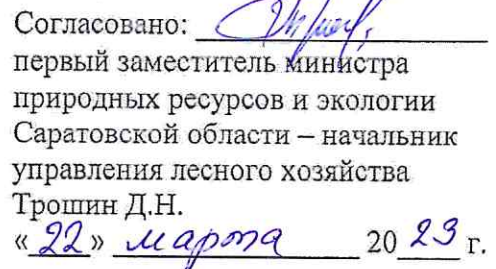 Согласовано:
первый заместитель министра
природных ресурсов и экологии
Саратовской области – начальник
управления лесного хозяйства
Трошин Д.Н.
«22» марта 2023 г.